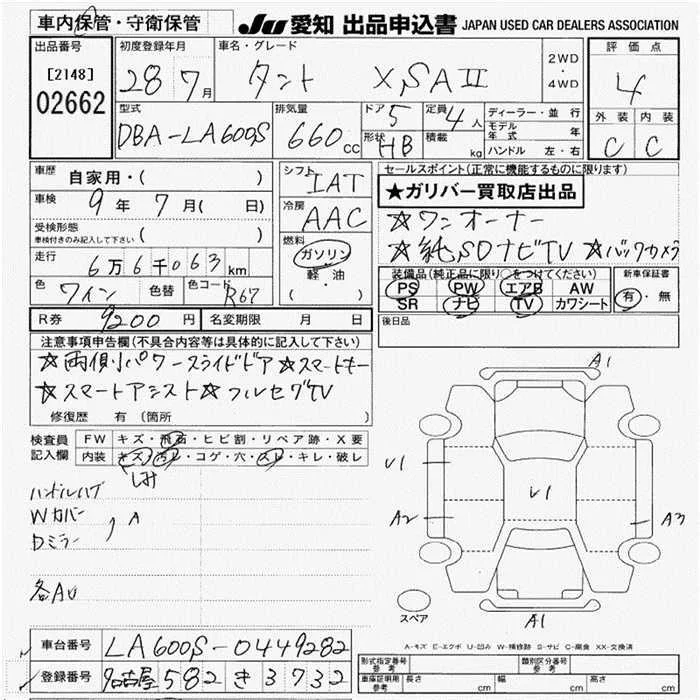 車内保管・守衛保管
JU 愛知 出品申込書 JAPAN USED CAR DEALERS ASSOCIATION
出品番号
[2148]
02662
初度登録年月
28 7月
車名・グレード
タント XSAⅡ
2WD
・
4WD
評価点
4
型式
DBA-LA600S
排気量
660cc
ドア
5
定員
4人
形状
HB
積載
kg
ディーラー・並行
モデル年式 年
ハンドル 左・右
外装 内装
C C
車歴
自家用・( )
車検
9年7月( 日)
受検形態
車検付きのみ記入して下さい ( )
走行
6万6千063km
色
ワイン
色替
色コード
R67
シフト
IAT
冷房
AAC
燃料
ガソリン
・軽・油
( )
セールスポイント(正常に機能するものに限ります)
★ガリバー買取店出品
☆ワンオーナー
☆純SDナビTV ☆バックカメラ
装備品(純正品に限り○をつけてください)
PS PW エアB AW
SR ナビ TV カワシート
新車保証書
有・無
R券
9200円
名変期限 月 日
後日品
注意事項申告欄(不具合内容等は具体的に記入して下さい)
☆両側パワースライドドア☆スマートキー
☆スマートアシスト☆フルセグTV
修復歴 有(箇所 )
検査員
記入欄
FW キズ・飛石・ヒビ割・リペア跡・X要
内装 キズ・汚レ・コゲ・穴・スレ・キレ・破レ
ハンドルハゲ
Wカバー
Dミラー
A
各AU
A1
U1
U1
A2
A3
A1
スペア
A-キズ E-エクボ U-凹み W-補修跡 S-サビ C-腐食 XX-交換済
車台番号
LA600S-0449282
登録番号
名古屋582き3732
形式指定番号
参考
類別区分番号
参考
車庫証明用
参考
長さ cm 幅 cm 高さ cm